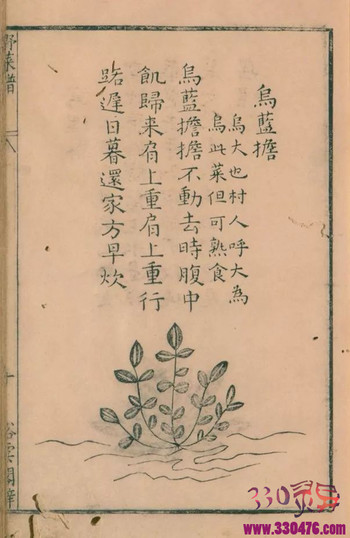 烏藍擔
烏大也村人呼大為
烏此菜但可熟食
烏藍擔擔不動去時腹中
飢歸来肩上重肩上重行
踏遲日暮還家方早炊
野菜譜
八
330
www.330476.com